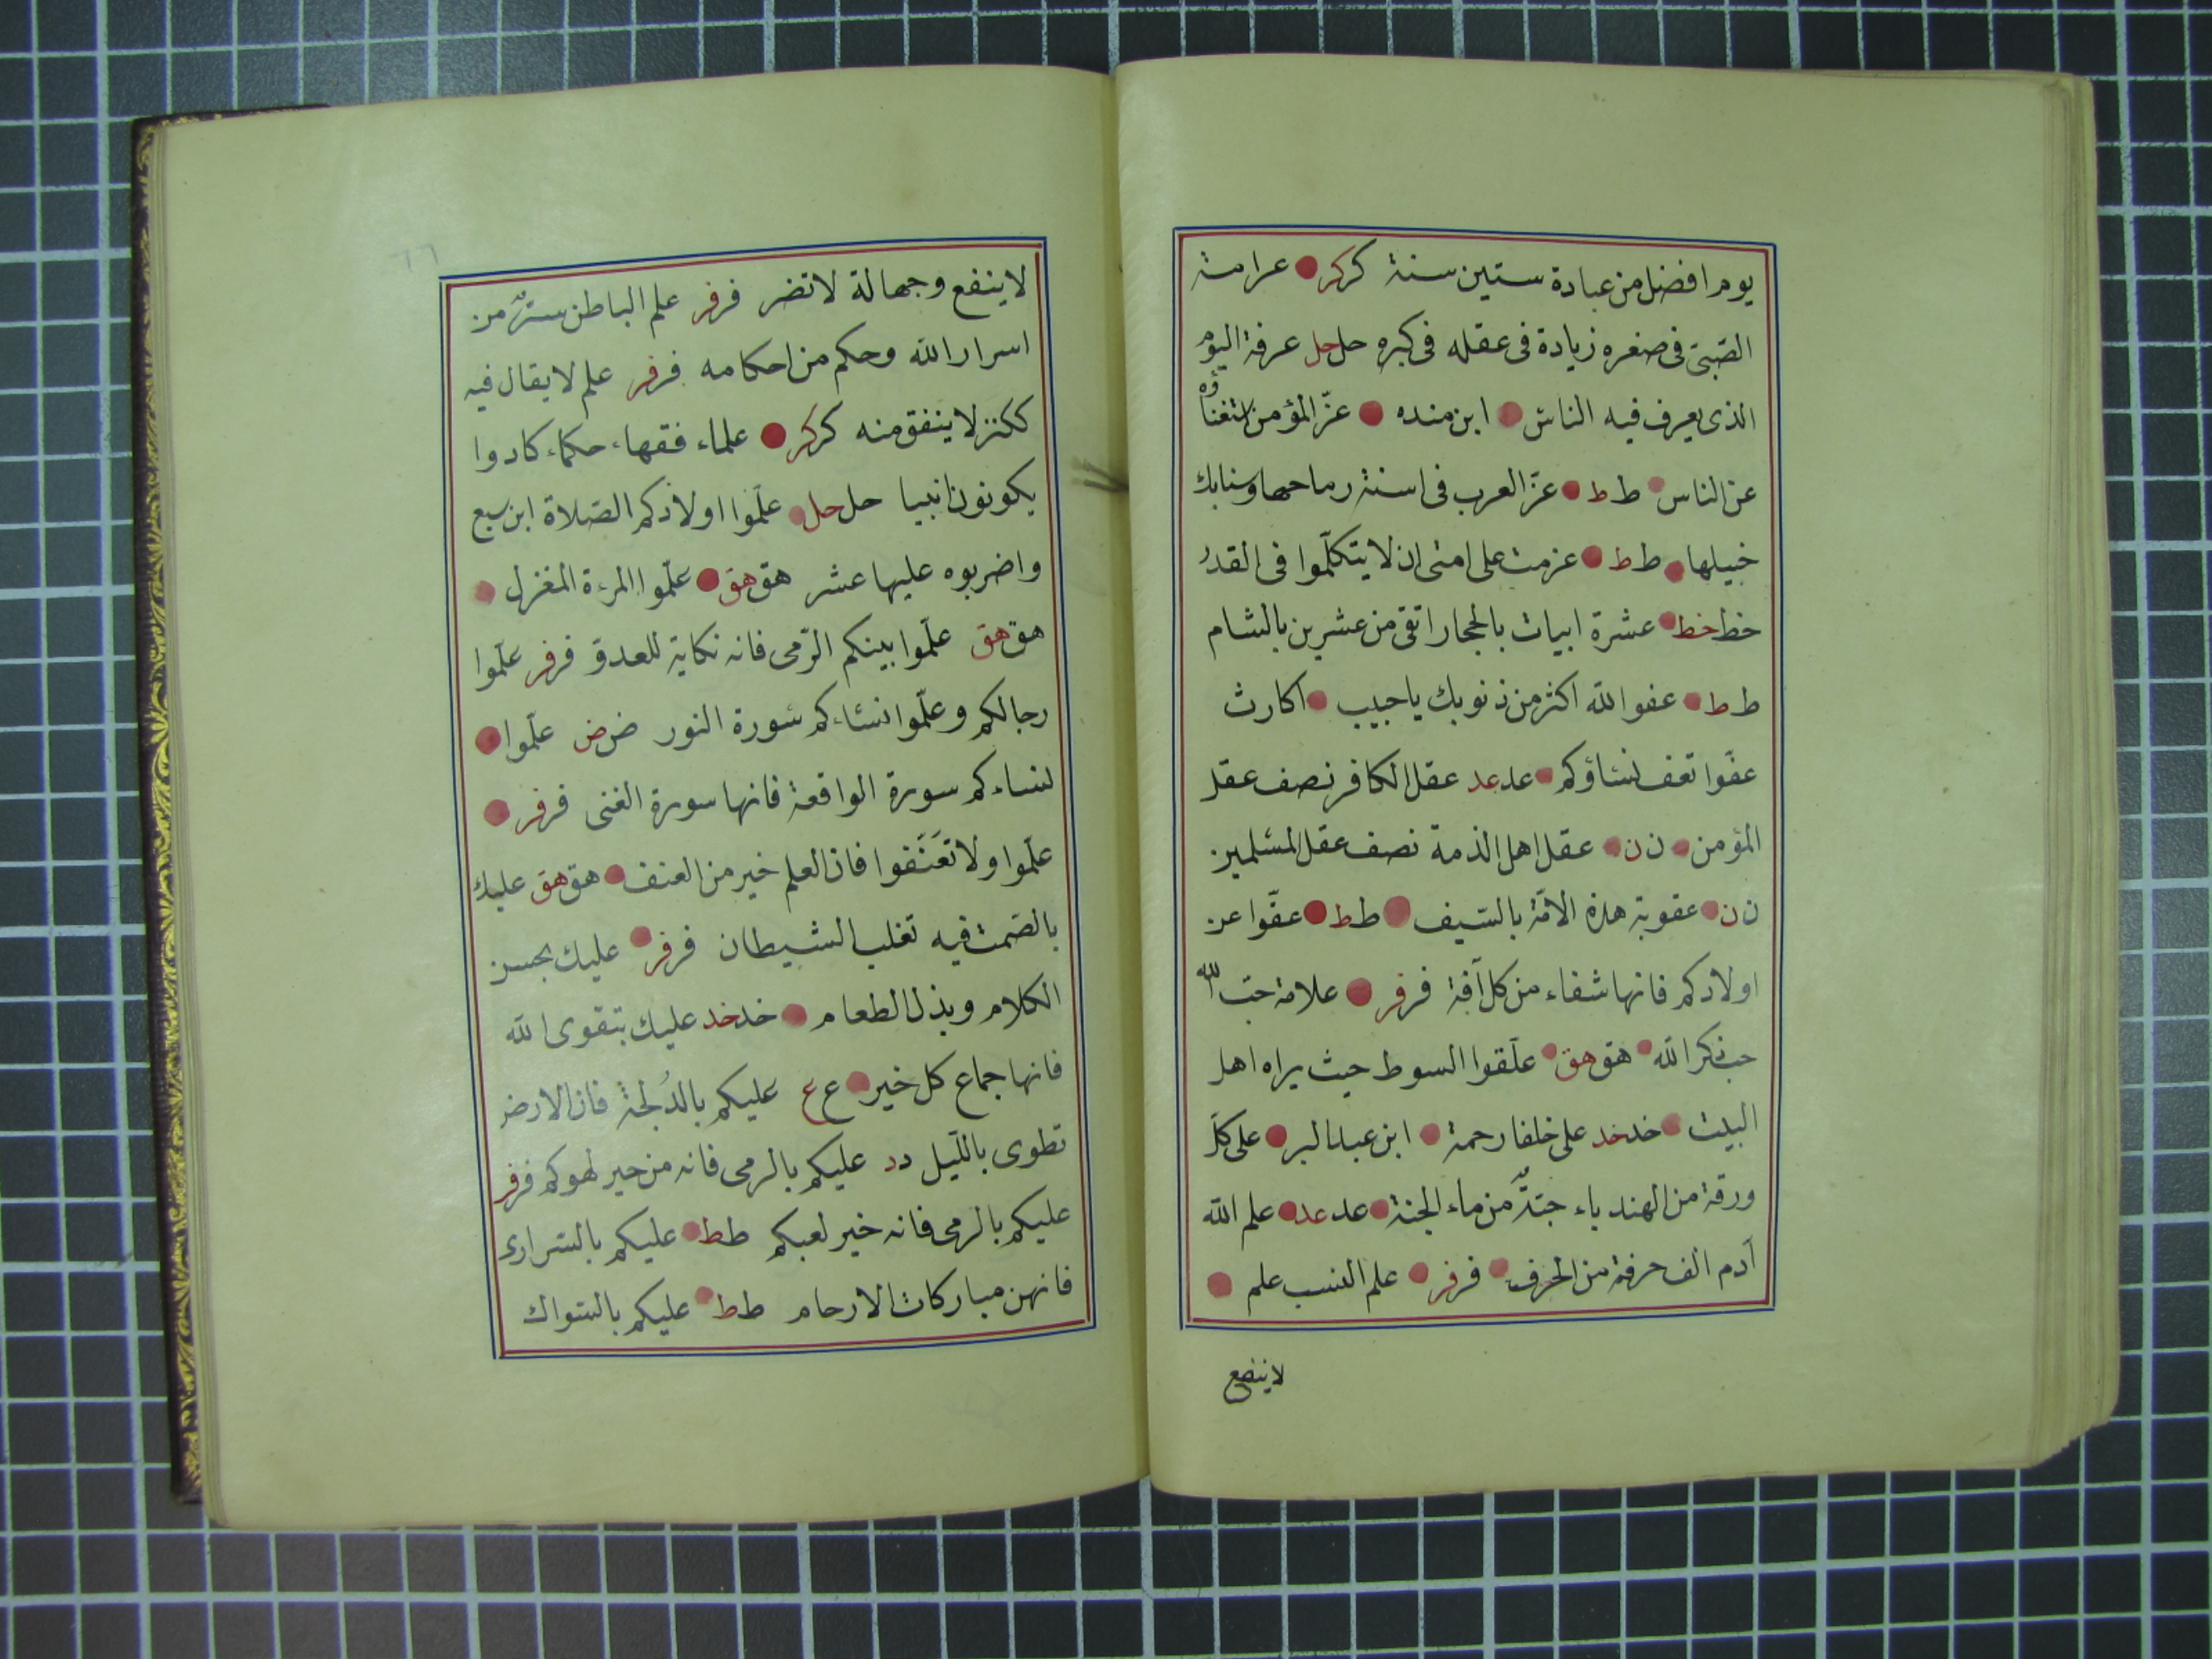 يوم افضل من عبادة ستين سنة كركر عرامة
الصّبىّ فى صغره زيادة فى عقله فى كبره حل حل عرفة اليوم
الذى يعرف فيه الناس ابن منده عزّ المؤمن استغناؤه
عن الناس ط ط عزّ العرب فى اسنة رماحها وسنابك
خيلها ط ط عزمت على امتى ان لا يتكلّموا فى القدر
خط خط عشرة ابيات بالحجاز اتقى من عشرين بالشام
ط ط عفو الله اكثر من ذنوبك يا حبيب اكارث
عفّوا تعف نساؤكم عد عد عقل الكافر نصف عقل
المؤمن ن ن عقل اهل الذمة نصف عقل المسلمين
ن ن عقوبة هذه الامّة بالسّيف ط ط عقّوا عن
اولادكم فانها شفاء من كل آفة فرفر علامة حبّ الله
حب ذكر الله هق هق علّقوا السوط حيث يراه اهل
البيت خد خد على خلفا رحمة ابن عبد البر على كلّ
ورقة من الهندباء جنّة من ماء الجنة عد عد علم الله
آدم الف حرفة من الحرف فرفر علم النسب علم
لا ينفع
٦٦
لا ينفع وجهالة لا تضر فرفر علم الباطن سرّ من
اسرار الله وحكم من احكامه فرفر علم لا يقال فيه
ككنز لا ينفق منه كركر علماء فقهاء حكماء كادوا
يكونون انبيا حل حل علّموا اولادكم الصّلاة ابن سبع
واضربوه عليها عشر هق هق علّموا المرءة المغزل
هق هق علّموا بينكم الرّمى فانه نكاية للعدوّ فرفر علّموا
رجالكم وعلّموا نساءكم سورة النور ض ض علّموا
نساءكم سورة الواقعة فانها سورة الغنى فرفر
علّموا ولا تَعَنّفوا فان العلم خير من العنف هق هق عليك
بالصّمت فيه تغلب الشيطان فرفر عليك بحسن
الكلام وبذل الطعام خد خد عليك بتقوى الله
فانها جماع كل خير ع ع عليكم بالدُلجة فان الارض
تطوى باللّيل د د عليكم بالرمى فانه من خير لهوكم فرفر
عليكم بالرمى فانه خير لعبكم ط ط عليكم بالسّرارى
فانهن مباركات الارحام ط ط عليكم بالسّواك